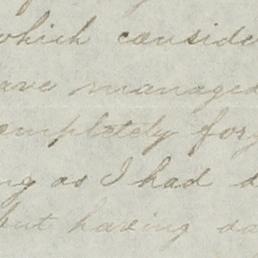 which conside
ave managed
ompletely forg
ng as I had
but having